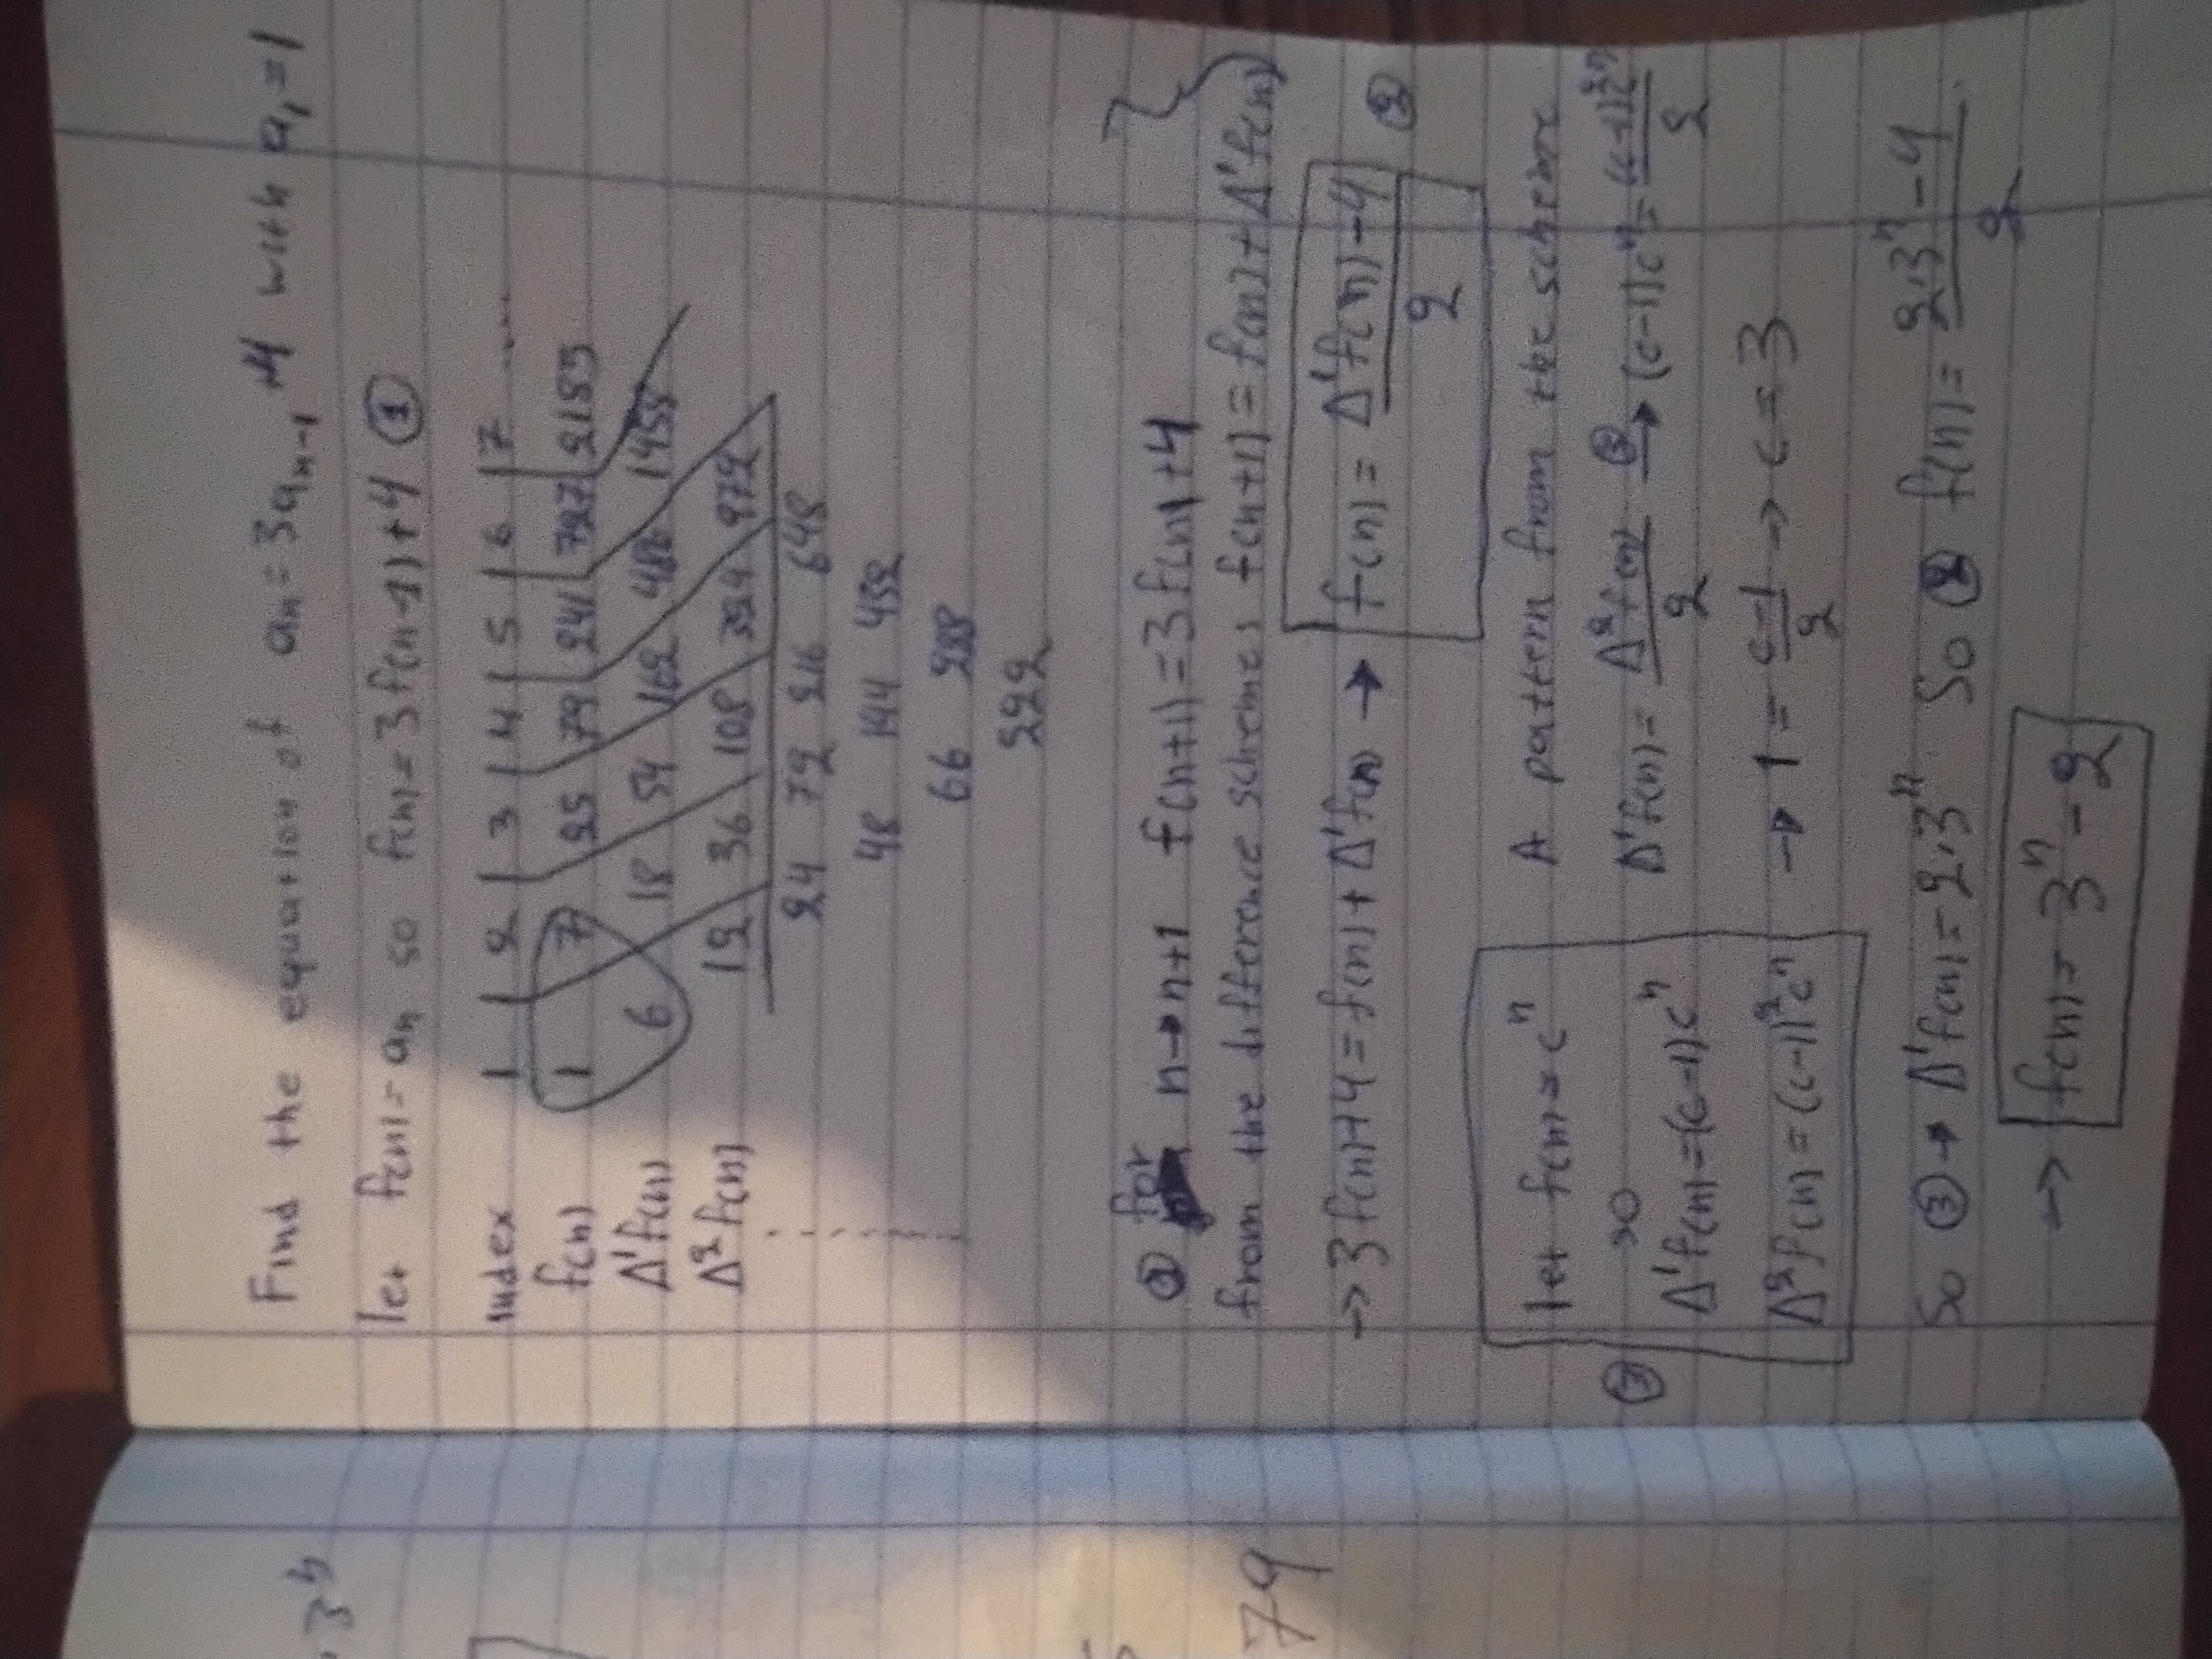 Find the equation of a_n = 3a_{n-1} + 4 with a_1 = 1
let f(n) = a_n so f(n) = 3f(n-1) + 4 ①
index 1 | 2 | 3 | 4 | 5 | 6 | 7 ....
f(n) 1 7 25 79 241 727 2185
Δ¹f(n) 6 18 54 162 486 1458
Δ²f(n) 12 36 108 324 972
24 72 216 648
48 144 432
66 288
222
① for n → n+1 f(n+1) = 3f(n) + 4
from the difference schemes f(n+1) = f(n) + Δ¹f(n)
→ 3f(n) + 4 = f(n) + Δ¹f(n) → f(n) = (Δ¹f(n) - 4)/2 ②
A pattern from the scheme
③ let f(n) = c^n
so
Δ¹f(n) = (c-1)c^n
Δ²f(n) = (c-1)²c^n
Δ¹f(n) = Δ²f(n)/2 ③→ (c-1)c^n = (c-1)²c^n/2
→ 1 = (c-1)/2 → c = 3
So ③ → Δ¹f(n) = 2.3^n So ② f(n) = (2.3^n - 4)/2
→ f(n) = 3^n - 2
3^n
79